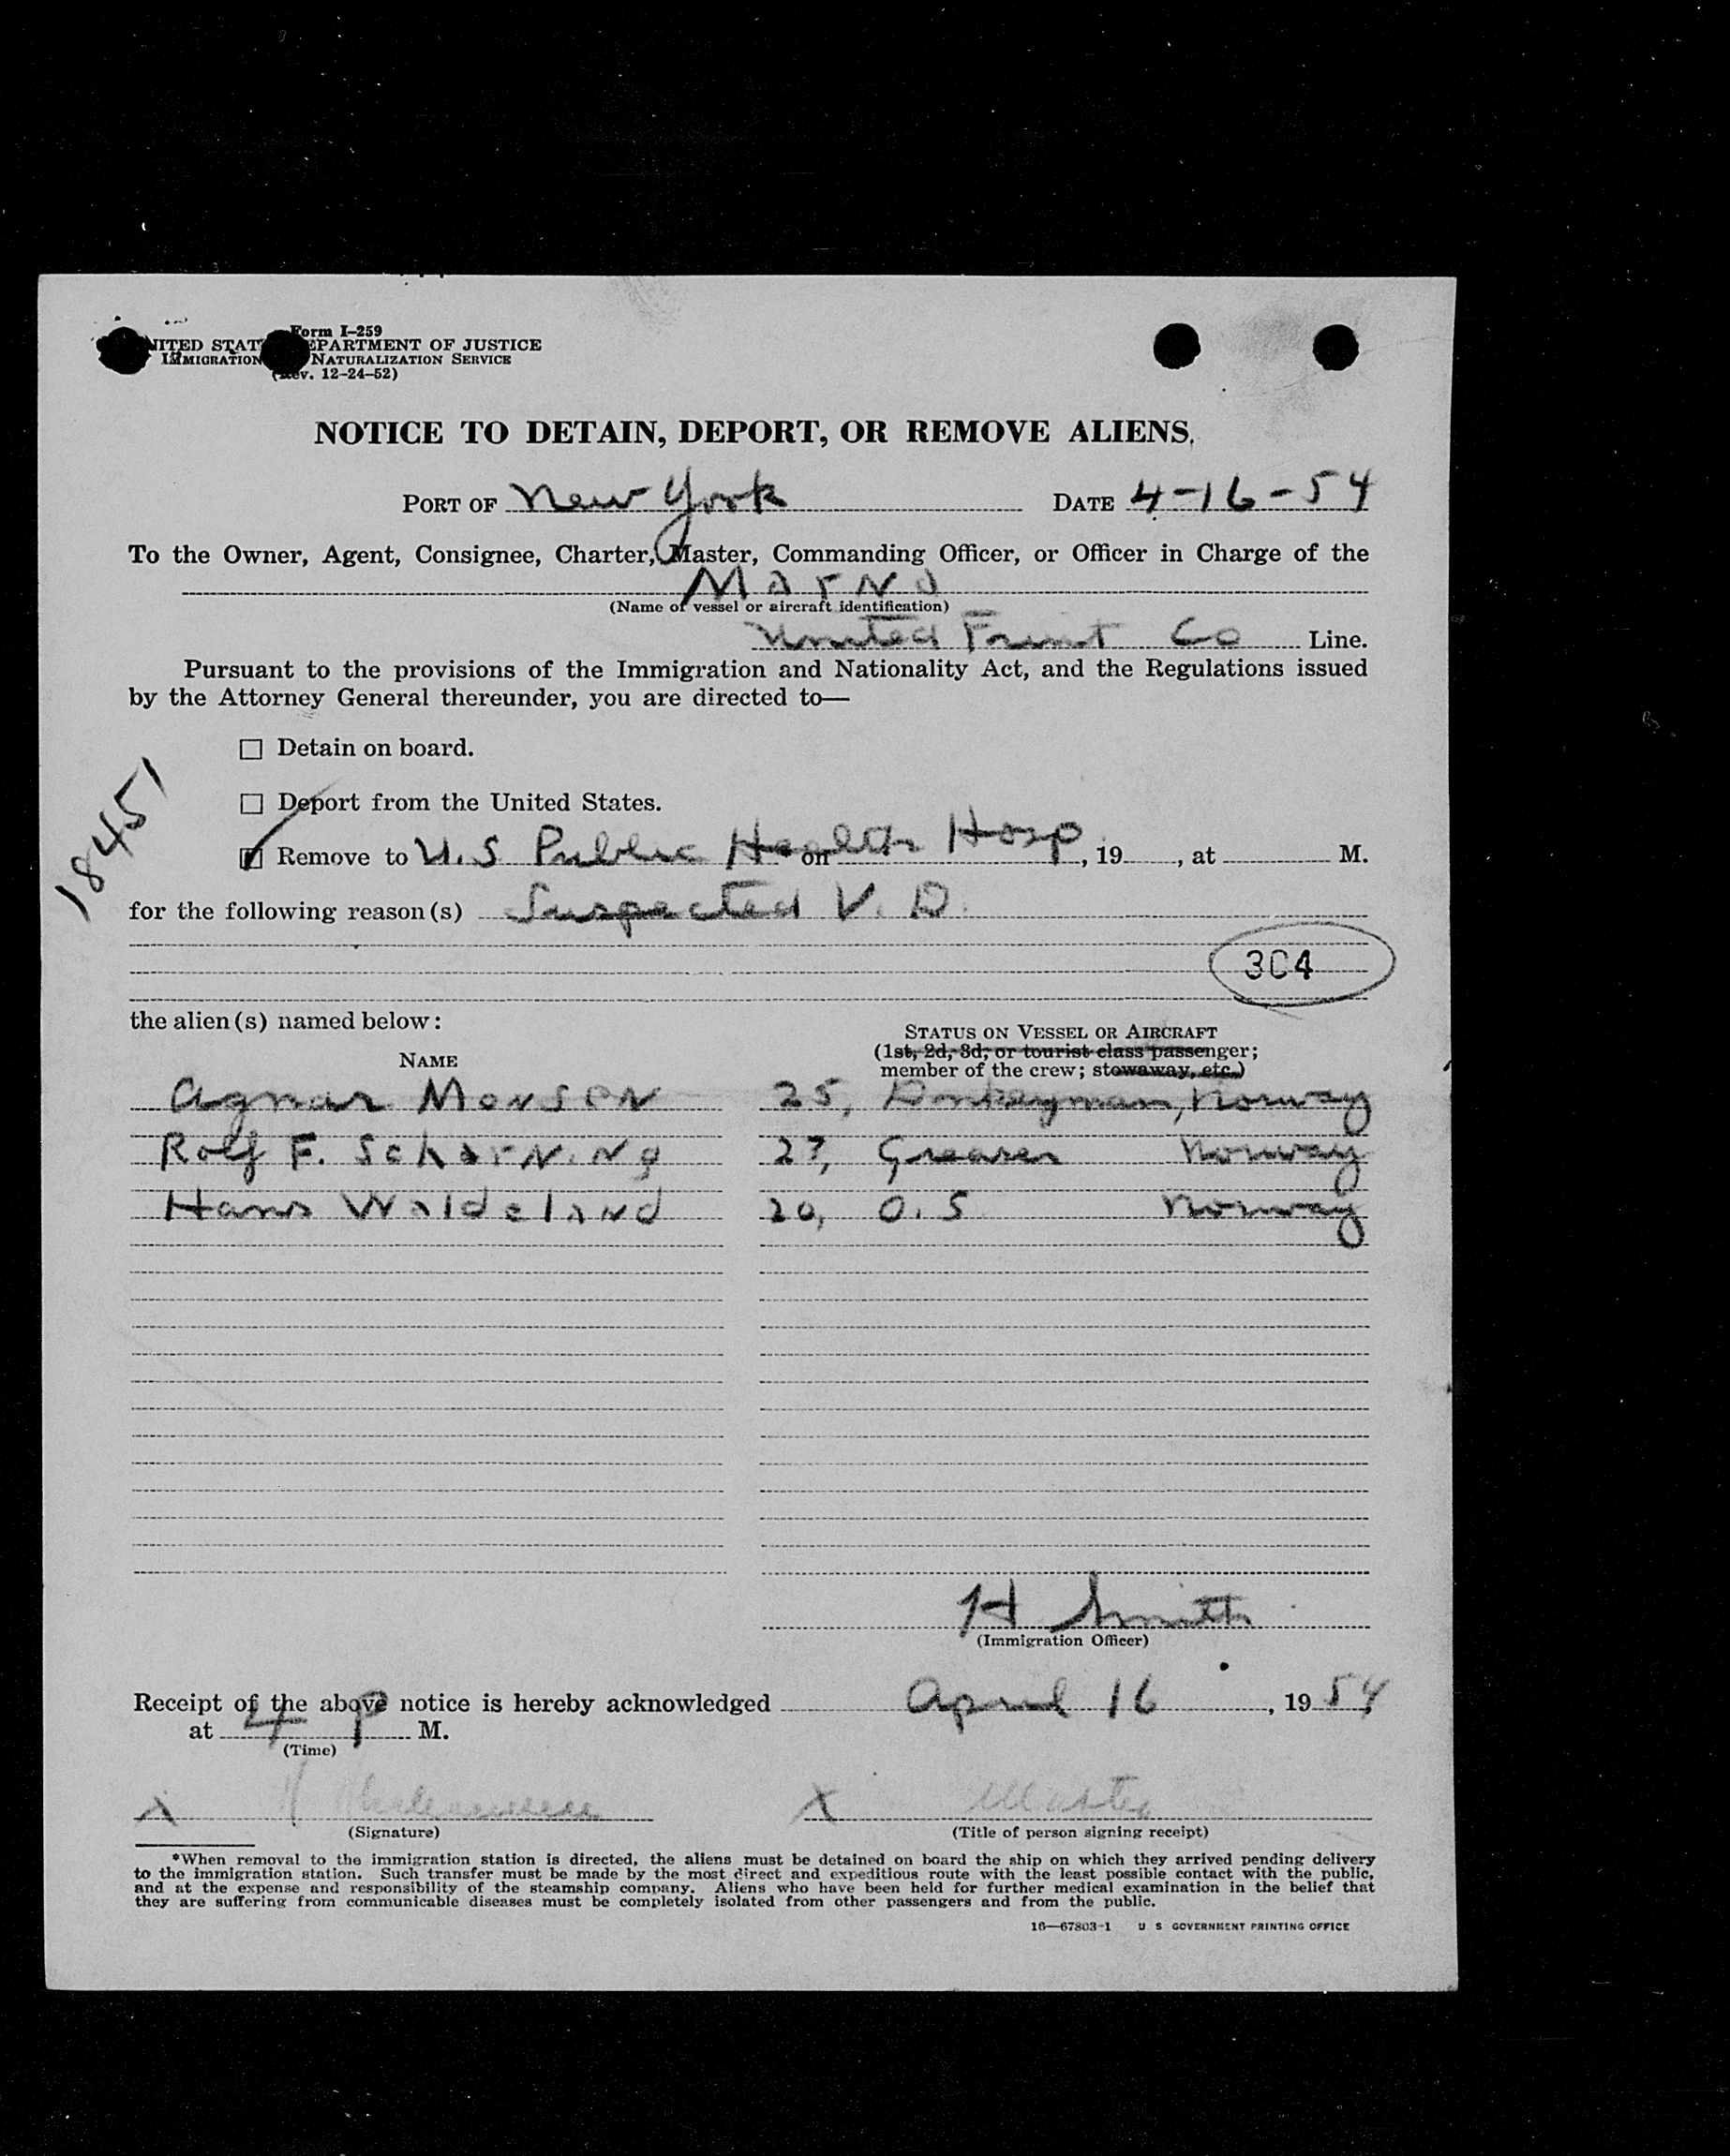 Form I-259
UNITED STATES DEPARTMENT OF JUSTICE
IMMIGRATION NATURALIZATION SERVICE
(Rev. 12-24-52)
NOTICE TO DETAIN, DEPORT, OR REMOVE ALIENS
PORT OF New York DATE 4-16-54
To the Owner, Agent, Consignee, Charter, Master, Commanding Officer, or Officer in Charge of the
Marna
(Name of vessel or aircraft identification)
United Fruit Co Line.
Pursuant to the provisions of the Immigration and Nationality Act, and the Regulations issued
by the Attorney General thereunder, you are directed to—
Detain on board.
Deport from the United States.
Remove to U.S Public Health Hosp on , 19 , at M.
18451
for the following reason(s) Suspected V. D.
304
the alien(s) named below:
NAME
STATUS ON VESSEL OR AIRCRAFT
(1st, 2d, 3d, or tourist class passenger;
member of the crew; stowaway, etc.)
Agnar Monson 25, Donkeyman, Norway
Rolf F. Scharning 27, Greaser Norway
Hans Waldeland 20, O.S Norway
H Smith
(Immigration Officer)
Receipt of the above notice is hereby acknowledged April 16, 1954
at 4 P M.
(Time)
X X Master
(Signature) (Title of person signing receipt)
*When removal to the immigration station is directed, the aliens must be detained on board the ship on which they arrived pending delivery
to the immigration station. Such transfer must be made by the most direct and expeditious route with the least possible contact with the public,
and at the expense and responsibility of the steamship company. Aliens who have been held for further medical examination in the belief that
they are suffering from communicable diseases must be completely isolated from other passengers and from the public.
16—67803-1 U S GOVERNMENT PRINTING OFFICE